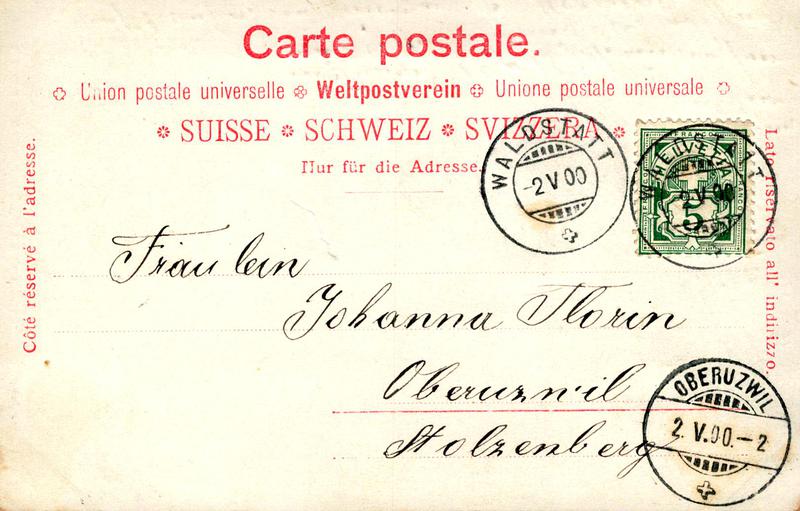 Carte postale.
Union postale universelle Weltpostverein Unione postale universale
SUISSE * SCHWEIZ * SVIZZERA *
Nur für die Adresse.
Côté réservé à l'adresse.
Lato riservato all' indirizzo.
WALDSTATT
-2 V 00
HELVETIA
FRANCO
5
2 V 00
Fräulein
Johanna Florin
Oberuzwil
Stolzenberg
OBERUZWIL
2. V. 00. - 2